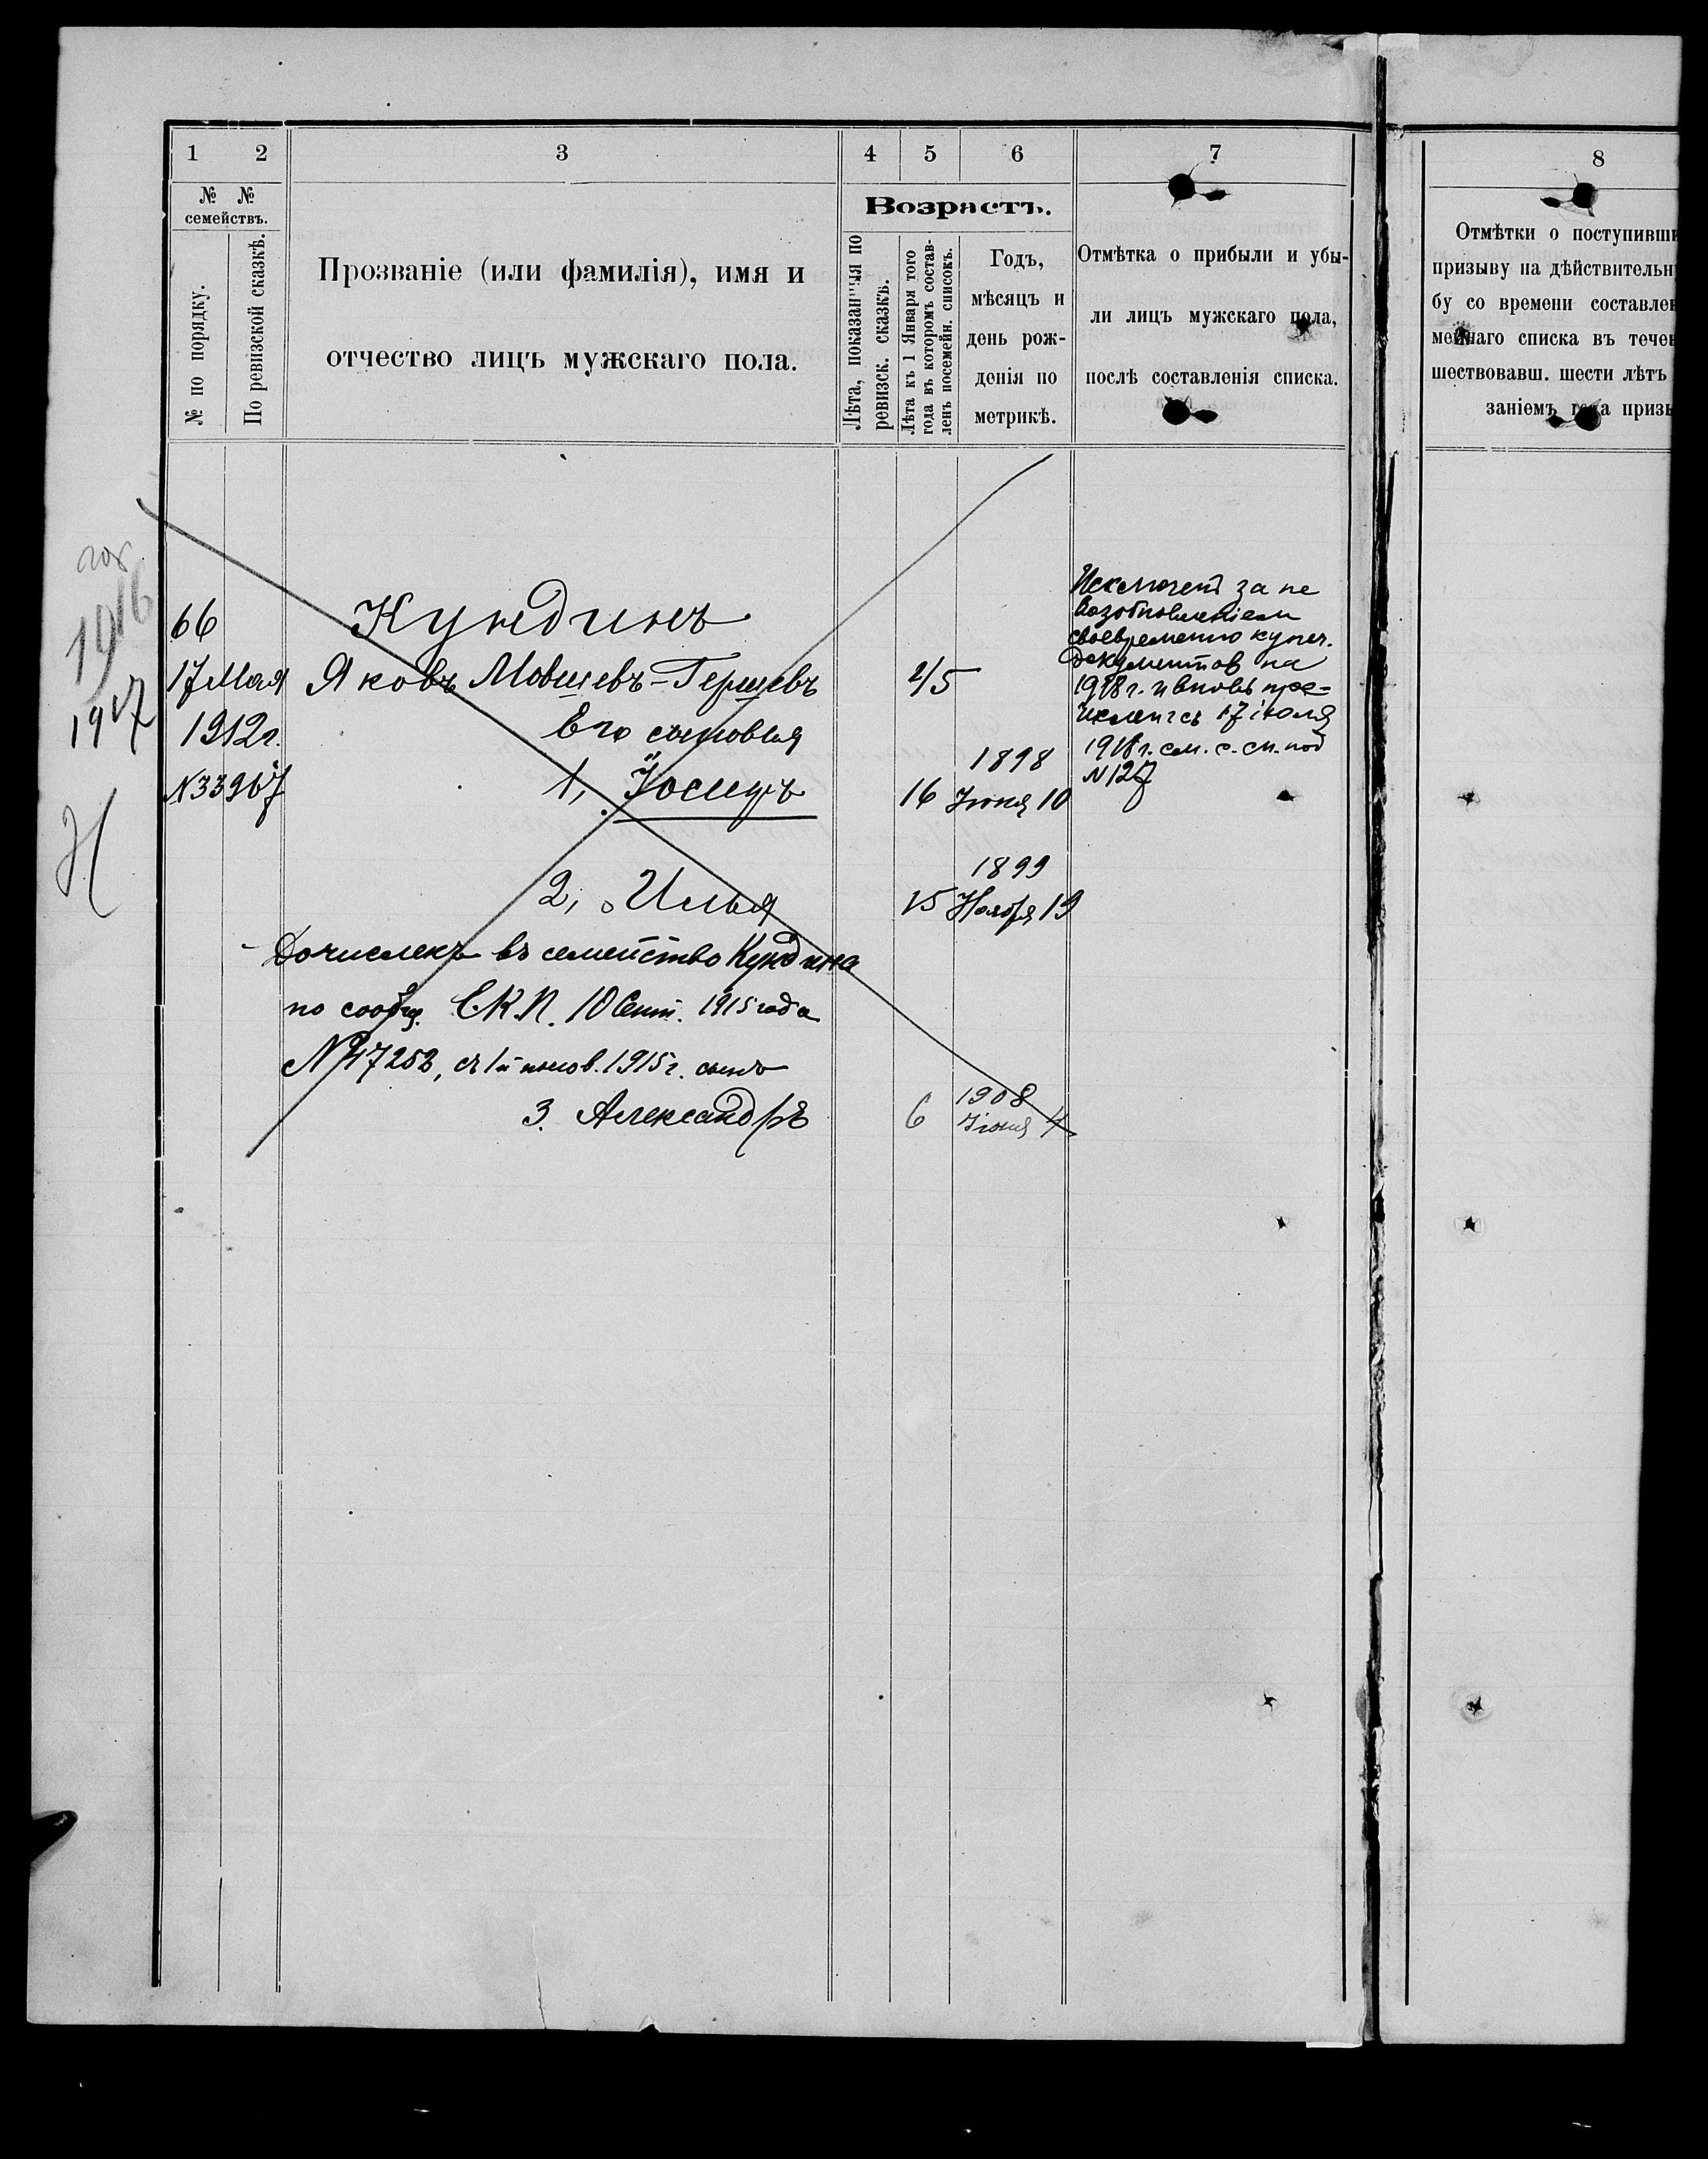 1 2 3 4 5 6 7 8
№ № семействъ.
№ по порядку.
По ревизской сказкѣ.
Прозваніе (или фамилія), имя и
отчество лицъ мужскаго пола.
Возрастъ.
Лѣта, показанныя по
ревизск. сказкѣ.
Лѣта къ 1 Января того
года въ которомъ состав-
ленъ посемейн. списокъ.
Годъ,
мѣсяцъ и
день рож-
денія по
метрикѣ.
Отмѣтка о прибыли и убы-
ли лицъ мужскаго пола,
послѣ составленія списка.
Отмѣтки о поступивши
призыву на дѣйствительн
бу со времени составлен
мейнаго списка въ течен
шествовавш. шести лѣтъ
заніемъ года призы
1916
1917
66
17 Мая
1912 г.
N 33967
Кундинъ
Яковъ Мовшевъ-Гершевъ
45
Его сыновья
1, Іосифъ
16
1898
Іюня 10
2, Илья
15
1899
Ноября 19
Дочисленъ въ семейство Кундина
по сообщ. С.К.П. 10 Сент. 1915 года
№ 17252, съ 1й полов. 1915 г. сынъ
3. Александръ
6
1908
Іюня 4
Исключен за не
возобновленіем
своевременно купеч.
документов на
1918 г. и вновь при-
численъ 17 іюля
1918 г. см. с. сп. под
N 127